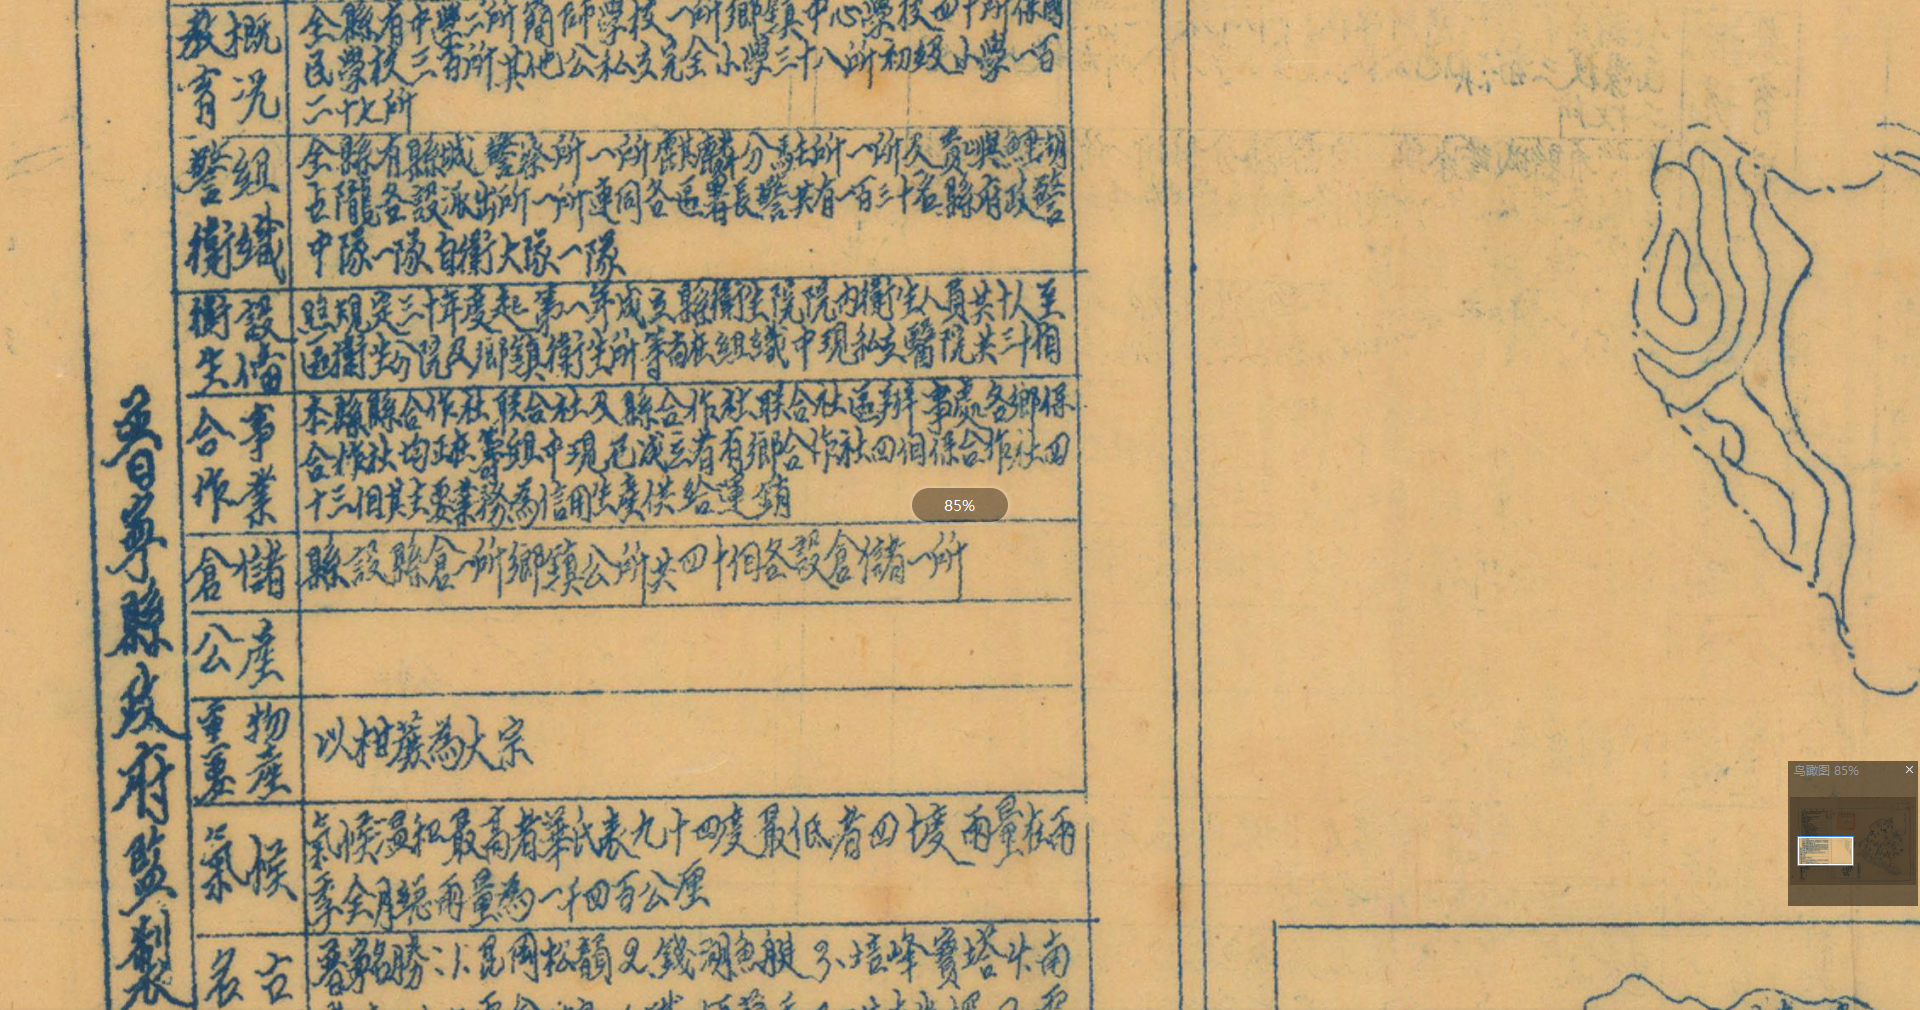 普寧縣政府監製
教育概况
全縣有中學二所簡師學校一所鄉鎮中心學校四十所保國
民學校三百所其他公私立完全小學三十八所初級小學一百
二十七所
警衛組織
全縣有縣城警察所一所麒麟分駐所一所及貴嶼鯉湖
五隴各設派出所一所連同各區署長警共有一百三十名縣府政警
中隊一隊自衛大隊一隊
衛生設備
照規定三十年度起第一年成立縣衛生院院内衛生人員共十人至
區衛生分院及鄉鎮衛生所等者在組織中現私立醫院共三十個
合作事業
本縣縣合作社联合社及縣合作社联合社區辦事處各鄉保
合作社均正在籌組中現已成立者有鄉合作社四個保合作社四
十三個其主要業務為信用生產供給運銷
倉儲
縣設縣倉一所鄉鎮公所共四十個各設倉儲一所
公產
重要物產
以柑蔗為大宗
氣候
氣候温和最高者華氏表九十四度最低者四十度雨量在雨
季全月總雨量為一千四百公厘
名古
普寧名勝：1.昆岡松韻 2.錢湖魚艇 3.培峰寶塔 4.南
85%
鸟瞰图 85%